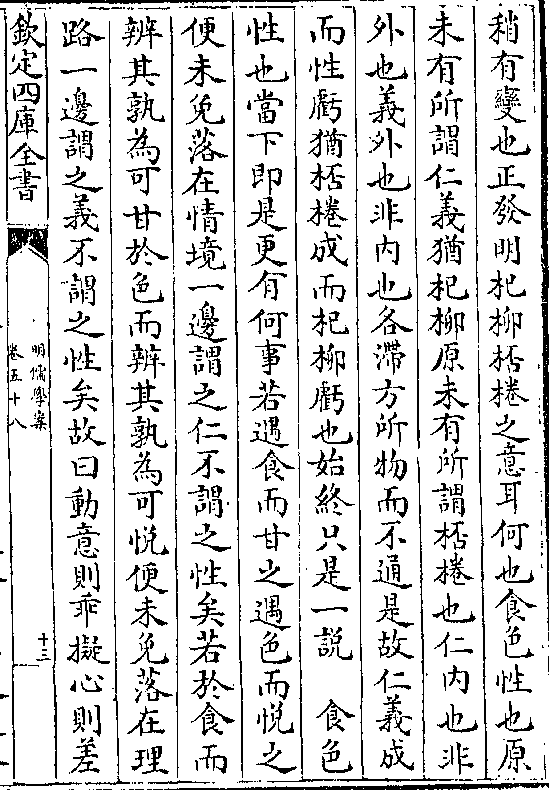 稍有變也正發明杞柳桮棬之意耳何也食色性也原
未有所謂仁義猶杞柳原未有所謂桮棬也仁內也非
外也義外也非內也各滯方所物而不通是故仁義成
而性虧猶桮棬成而杞柳虧也始終只是一說　食色
性也當下即是更有何事若遇食而甘之遇色而悅之
便未免落在情境一邊謂之仁不謂之性矣若於食而
辨其孰為可甘於色而辨其孰為可悅便未免落在理
路一邊謂之義不謂之性矣故曰動意則乖擬心則差
欽定四庫全書
明儒學案
卷五十八
十三